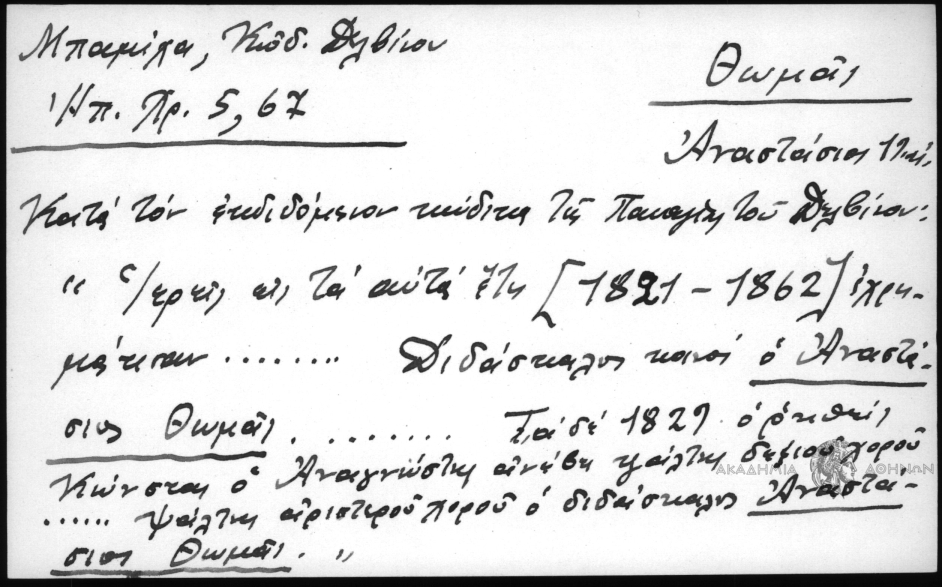 Μπαμίχα, Κώδ. Δελβίνου
Ἠπ. Χρ. 5, 67
Θωμᾶς
Ἀναστάσιος
Κατά τόν ἐκδιδόμενον κώδικα τῆς Παναγίας τοῦ Δελβίνου:
“ Ἱερεῖς εἰς τά αὐτά ἔτη [1821 – 1862] ἐχρη-
μάτισαν ........ Διδάσκαλος κοινός ὁ Ἀναστά-
σιος Θωμᾶς. ....... Τῷ δέ 1829 ὁ ῥηθείς
Κώνστας ὁ Ἀναγνώστης ἀνέβη ψάλτης δεξιοῦ χοροῦ
...... ψάλτης ἀριστεροῦ χοροῦ ὁ διδάσκαλος Ἀναστά-
σιος Θωμᾶς. „
ΑΚΑΔΗΜΙΑ ΑΘΗΝΩΝ